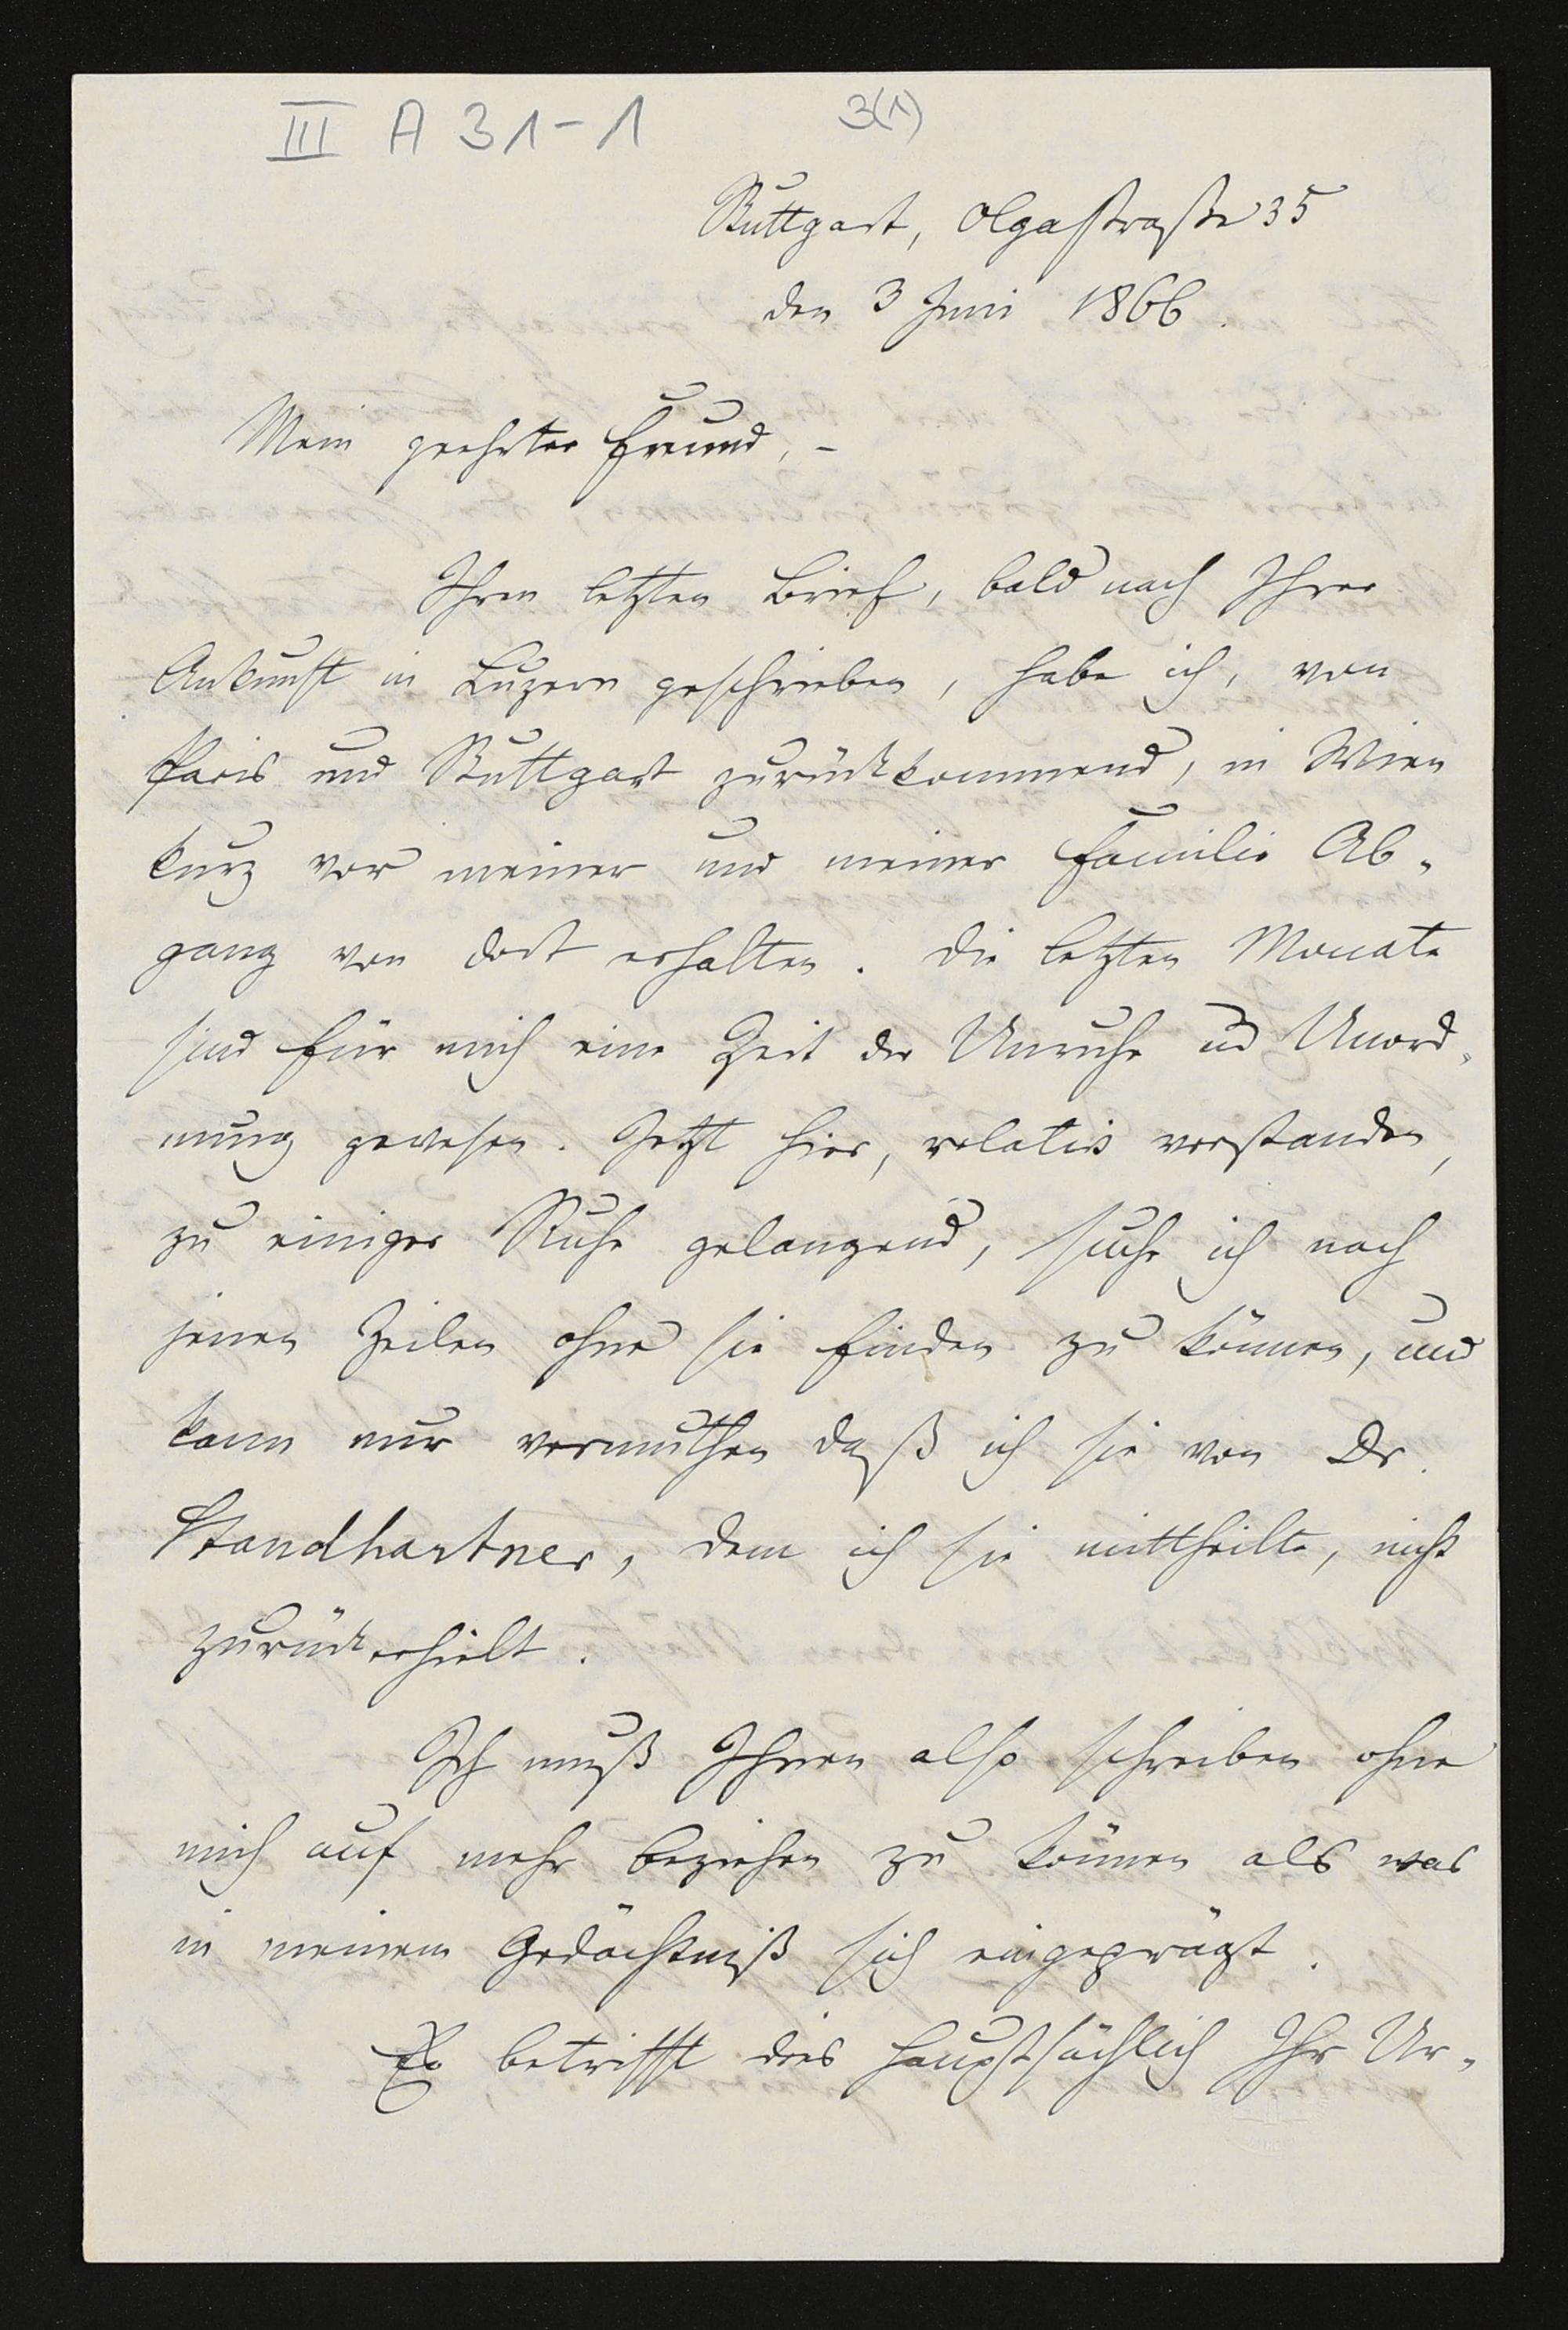 III A 31-1
3(1)
Stuttgart, Olgastraße 35
den 3 Juni 1866.
Mein geehrter Freund, –
Ihren letzten Brief, bald nach Ihrer
Ankunft in Luzern geschrieben, habe ich, von
Paris und Stuttgart zurückkommend, in Wien
kurz vor meiner und meiner Familie Ab-
gang von dort erhalten. Die letzten Monate
sind für mich eine Zeit der Unruhe und Unord-
nung gewesen. Jetzt hier, relativ verstanden,
zu einiger Ruhe gelangend, suche ich nach
jenen Zeilen ohne sie finden zu können, und
kann nur vermuthen daß ich sie von Dr.
Standhartner, dem ich sie mittheilte, nicht
zurückerhielt.
Ich muß Ihnen also schreiben ohne
mich auf mehr beziehen zu können als was
in meinem Gedächtniß sich eingeprägt.
Es betrifft dies hauptsächlich Ihr Ur-